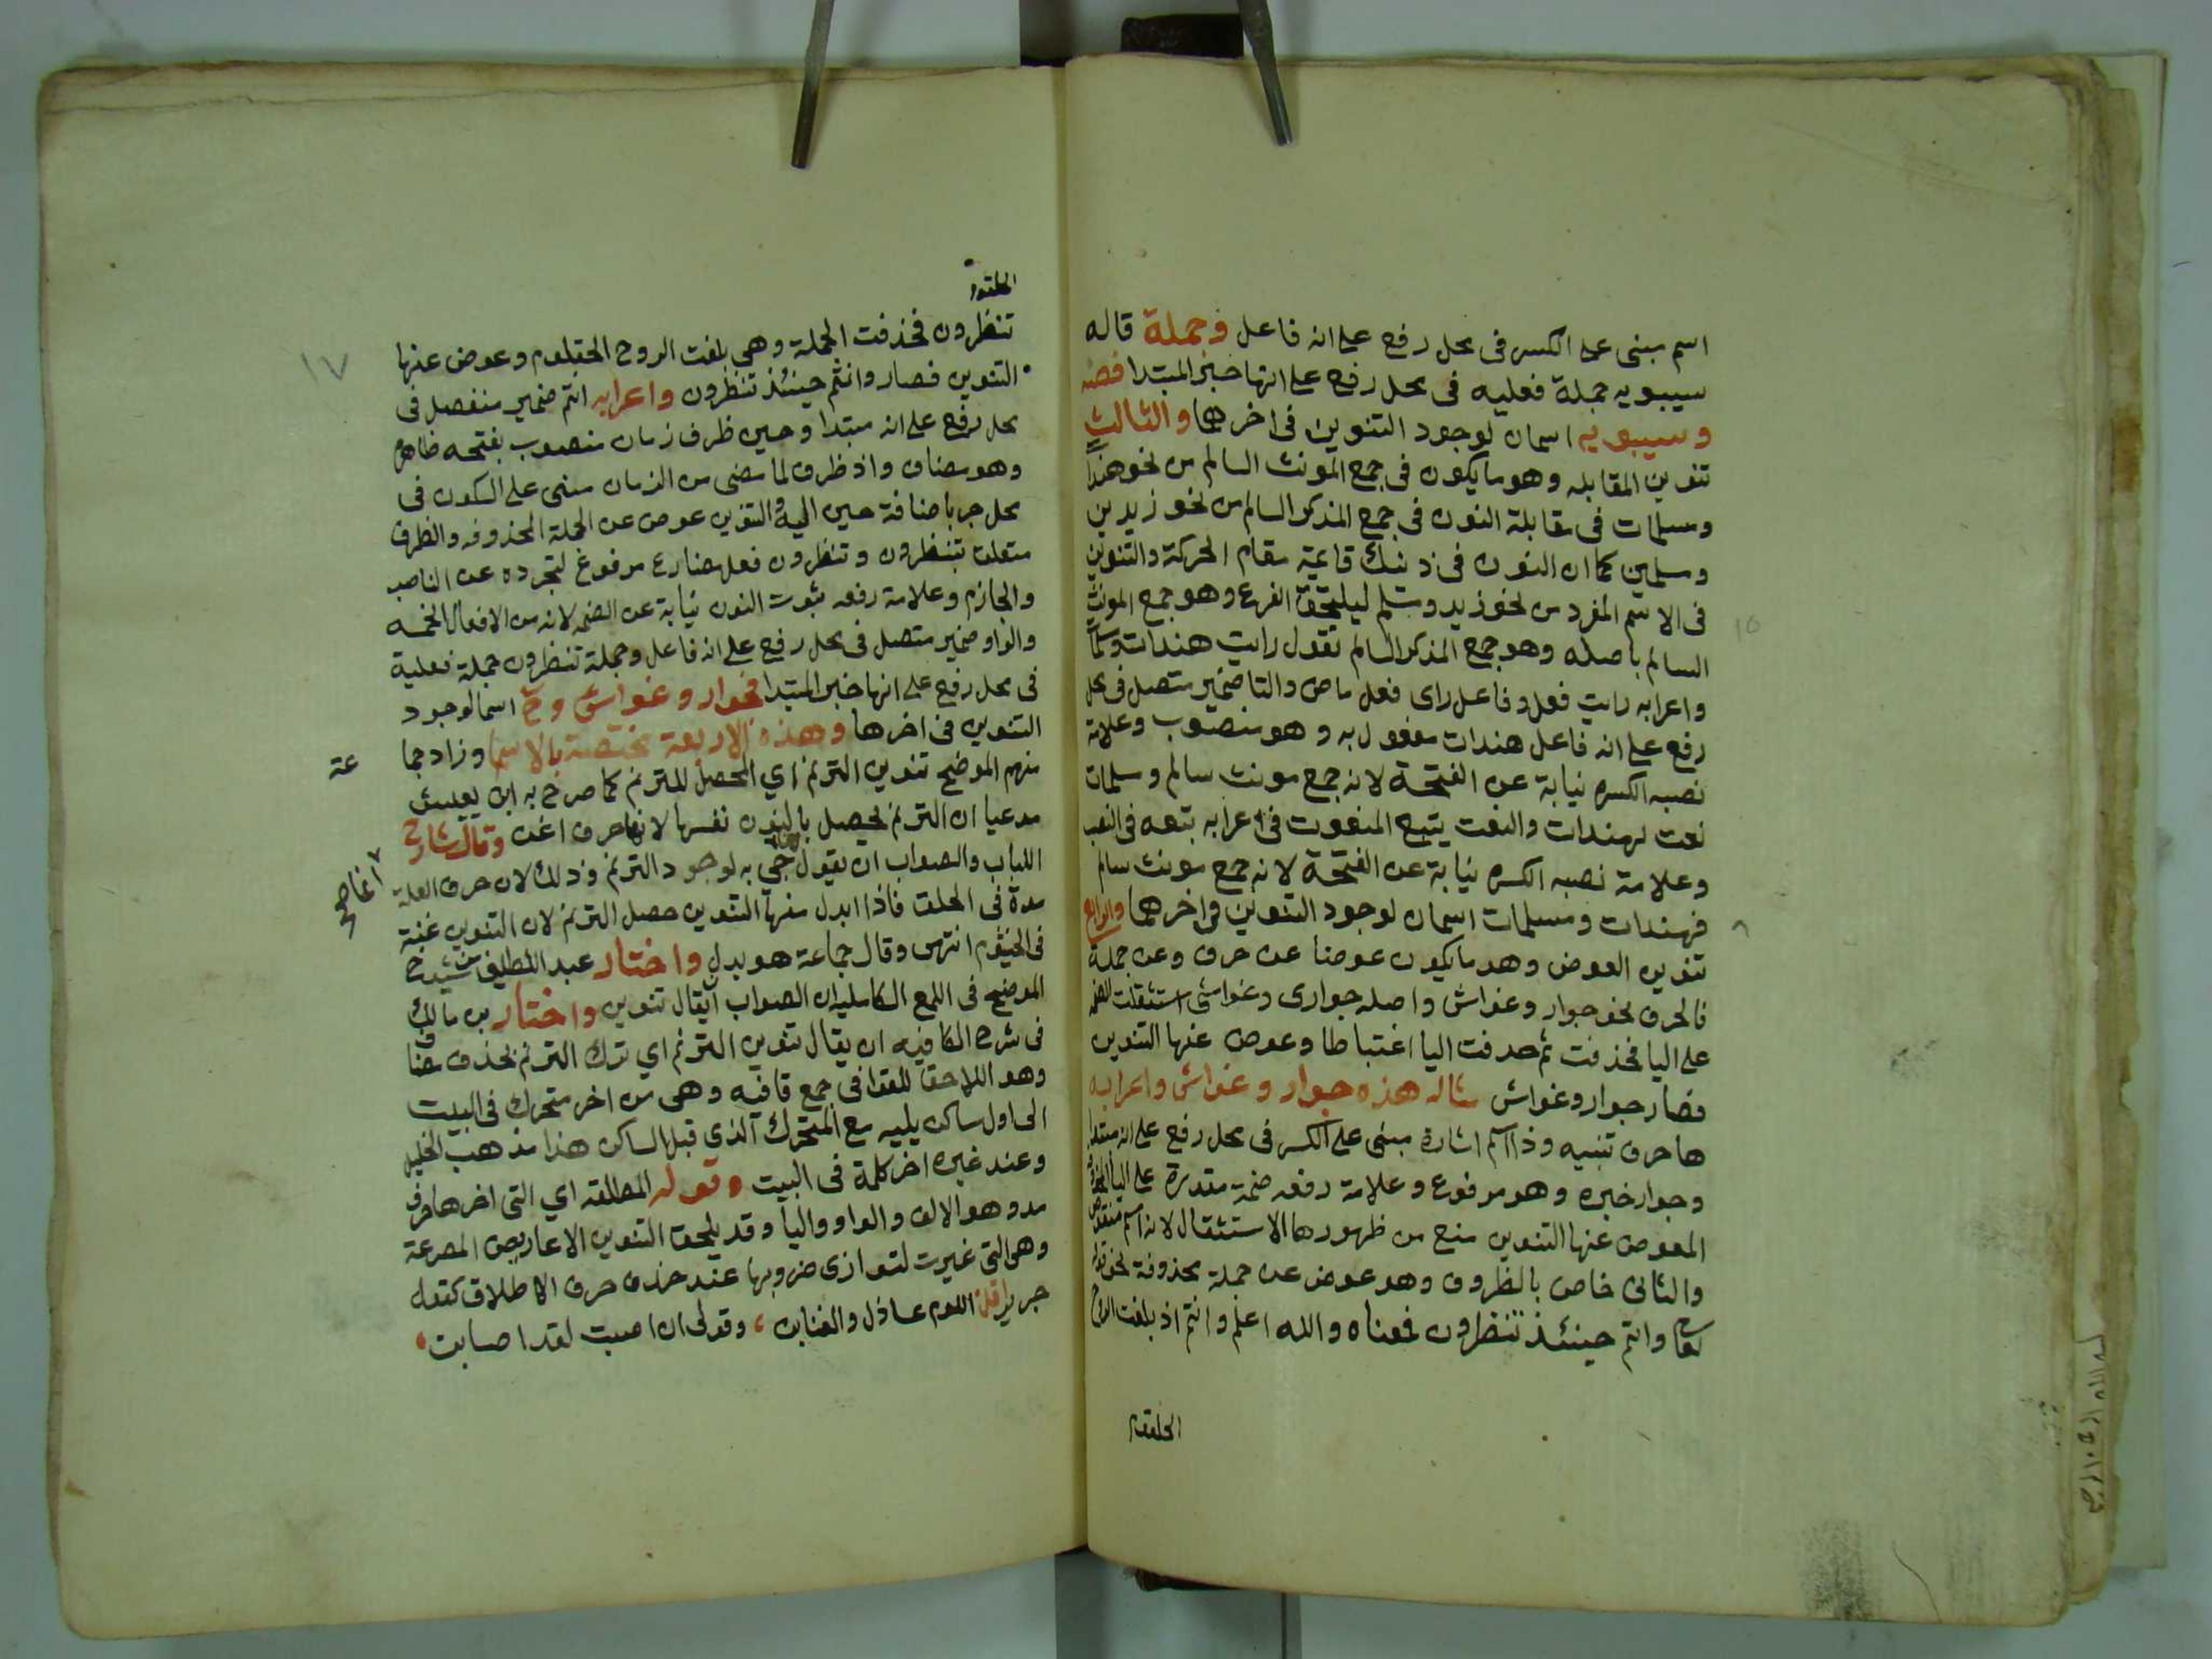 اسم مبنى على الكسر فى محل رفع على انه فاعل وجملة قاله
سيبويه جملة فعليه فى محل رفع على انها خبر المبتدا فصه
وسيبويه اسمان لوجود التنوين فى اخرهما والثالث
تنوين المقابله وهو ما يكون فى جمع المونث السالم من نحو هندات
ومسلمات فى مقابلة النون فى جمع المذكر السالم من نحو زيدين
ومسلمين كما ان النون فى ذينك قايمة مقام الحركة والتنوين
فى الاسم المفرد من نحو زيد ومسلم ليلتحق الفرع وهو جمع المونث
السالم باصله وهو جمع المذكر السالم تقول رايت هندات مسلمات
واعرابه رايت فعل وفاعل راى فعل ماض والتا ضمير متصل فى محل
رفع على انه فاعل هندات مفعول به وهو منصوب وعلامة
نصبه الكسره نيابة عن الفتحة لانه جمع مونث سالم ومسلمات
نعت لهندات والنعت يتبع المنعوت فى اعرابه تبعه فى النصب
وعلامة نصبه الكسره نيابة عن الفتحة لانه جمع مونث سالم
فهندات ومسلمات اسمان لوجود التنوين فى اخرهما والرابع
تنوين العوض وهو ما يكون عوضا عن حرف وعن جملة
فالحرف نحو جوار وغواش واصله جوارى وغواشى استثقلت الضمه
على اليا فحذفت ثم حدفت اليا اعتباطا وعوض عنها التنوين
فصار جوار وغواش مثاله هذه جوار وغواش واعرابه
ها حرف تنبيه وذا اسم اشارة مبنى على الكسر فى محل رفع على انه مبتدا
وجوار خبره وهو مرفوع وعلامة رفعه ضمة مقدرة على اليا المحذوفه
المعوض عنها التنوين منع من ظهورها الاستثقال لانه اسم منقوص
والثانى خاص بالظروف وهو عوض عن جملة محذوفة نحو قوله
تعالى وانتم حينئذ تنظرون فمعناه والله اعلم وانتم اذ بلغت الروح
الحلقوم
الحلقوم
تنظرون فحذفت الجملة وهى بلغت الروح الحلقوم وعوض عنها
التنوين فصار وانتم حينئذ تنظرون واعرابه انتم ضمير منفصل فى
محل رفع على انه مبتدا وحين ظرف زمان منصوب بفتحه ظاهره
وهو مضاف واذ ظرف لما مضى من الزمان مبنى على السكون فى
محل جر باضافة حين اليه والتنوين عوض عن الجملة المحذوفه والظرف
متعلق بتنظرون وتنظرون فعل مضارع مرفوع لتجرده عن الناصب
والجازم وعلامة رفعه ثبوت النون نيابة عن الضمه لانه من الافعال الخمسه
والواو ضمير متصل فى محل رفع على انه فاعل وجملة تنظرون جملة فعلية
فى محل رفع على انها خبر المبتدا فجوار وغواش وح اسما لوجود
التنوين فى اخرها وهذه الاربعة مختصة بالاسما وزاد جما
عة
منهم الموضح تنوين الترنم اي المحصل للترنم كما صرح به ابن يعيش
مدعيا ان الترنم يحصل بالنون نفسها لانها حرف اغن وقال شارح
اللباب والصواب ان يقول جي به لوجود الترنم وذلك لان حرف العلة
مدة فى الحلق فاذا ابدل منها التنوين حصل الترنم لان التنوين غنة
فى الخيشوم انتهى وقال جماعة هو بدل واختار عبد اللطيف
الموضح فى اللمع الكامليه ان الصواب ان يقال تنوين واختار بن مالك
فى شرح الكافيه ان يقال تنوين الترنم اي ترك الترنم بحذف مضاف
وهو اللاحق للقوافى جمع قافيه وهى من اخر متحرك فى البيت
الى اول ساكن يليه مع المتحرك الذي قبل الساكن هذا مذهب الخليل
وعند غيره اخر كلمة فى البيت وقوله المطلقه اي التى اخرها حرف
مد وهو الالف والواو واليا وقد يلحق التنوين الاعاريض المصرعة
وهى التى غيرت لتوازى ضروبها عند حذف حرف الاطلاق كقول
جرير اقلن اللوم عاذل والعتابن وقولى ان اصبت لقد اصابت